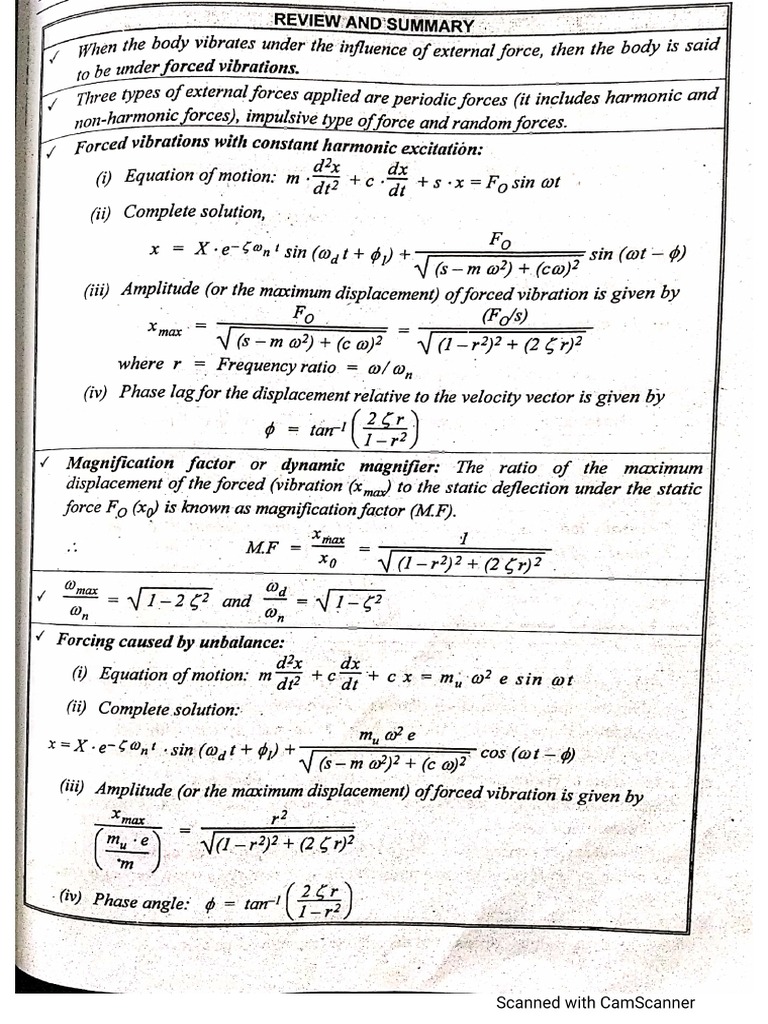 REVIEW AND SUMMARY
✓ When the body vibrates under the influence of external force, then the body is said
to be under forced vibrations.
✓ Three types of external forces applied are periodic forces (it includes harmonic and
non-harmonic forces), impulsive type of force and random forces.
✓ Forced vibrations with constant harmonic excitation:
(i) Equation of motion: m · d²x/dt² + c · dx/dt + s · x = F_O sin ωt
(ii) Complete solution,
x = X · e^(–ζω_n t) sin (ω_d t + ϕ_1) + F_O / √((s – m ω²) + (cω)²) sin (ωt – ϕ)
(iii) Amplitude (or the maximum displacement) of forced vibration is given by
x_max = F_O / √((s – m ω²) + (c ω)²) = (F_O/s) / √((1 – r²)² + (2 ζ r)²)
where r = Frequency ratio = ω/ω_n
(iv) Phase lag for the displacement relative to the velocity vector is given by
ϕ = tan⁻¹ (2 ζ r / 1 – r²)
✓ Magnification factor or dynamic magnifier: The ratio of the maximum
displacement of the forced (vibration (x_max) to the static deflection under the static
force F_O (x_0) is known as magnification factor (M.F).
∴ M.F = x_max / x_0 = 1 / √((1 – r²)² + (2 ζ r)²)
✓ ω_max / ω_n = √(1 – 2 ζ²) and ω_d / ω_n = √(1 – ζ²)
✓ Forcing caused by unbalance:
(i) Equation of motion: m d²x/dt² + c dx/dt + c x = m_u ω² e sin ωt
(ii) Complete solution:
x = X · e^(–ζω_n t) · sin (ω_d t + ϕ_1) + m_u ω² e / √((s – m ω²)² + (c ω)²) cos (ωt – ϕ)
(iii) Amplitude (or the maximum displacement) of forced vibration is given by
x_max / (m_u · e / m) = r² / √((1 – r²)² + (2 ζ r)²)
(iv) Phase angle: ϕ = tan⁻¹ (2 ζ r / 1 – r²)
Scanned with CamScanner